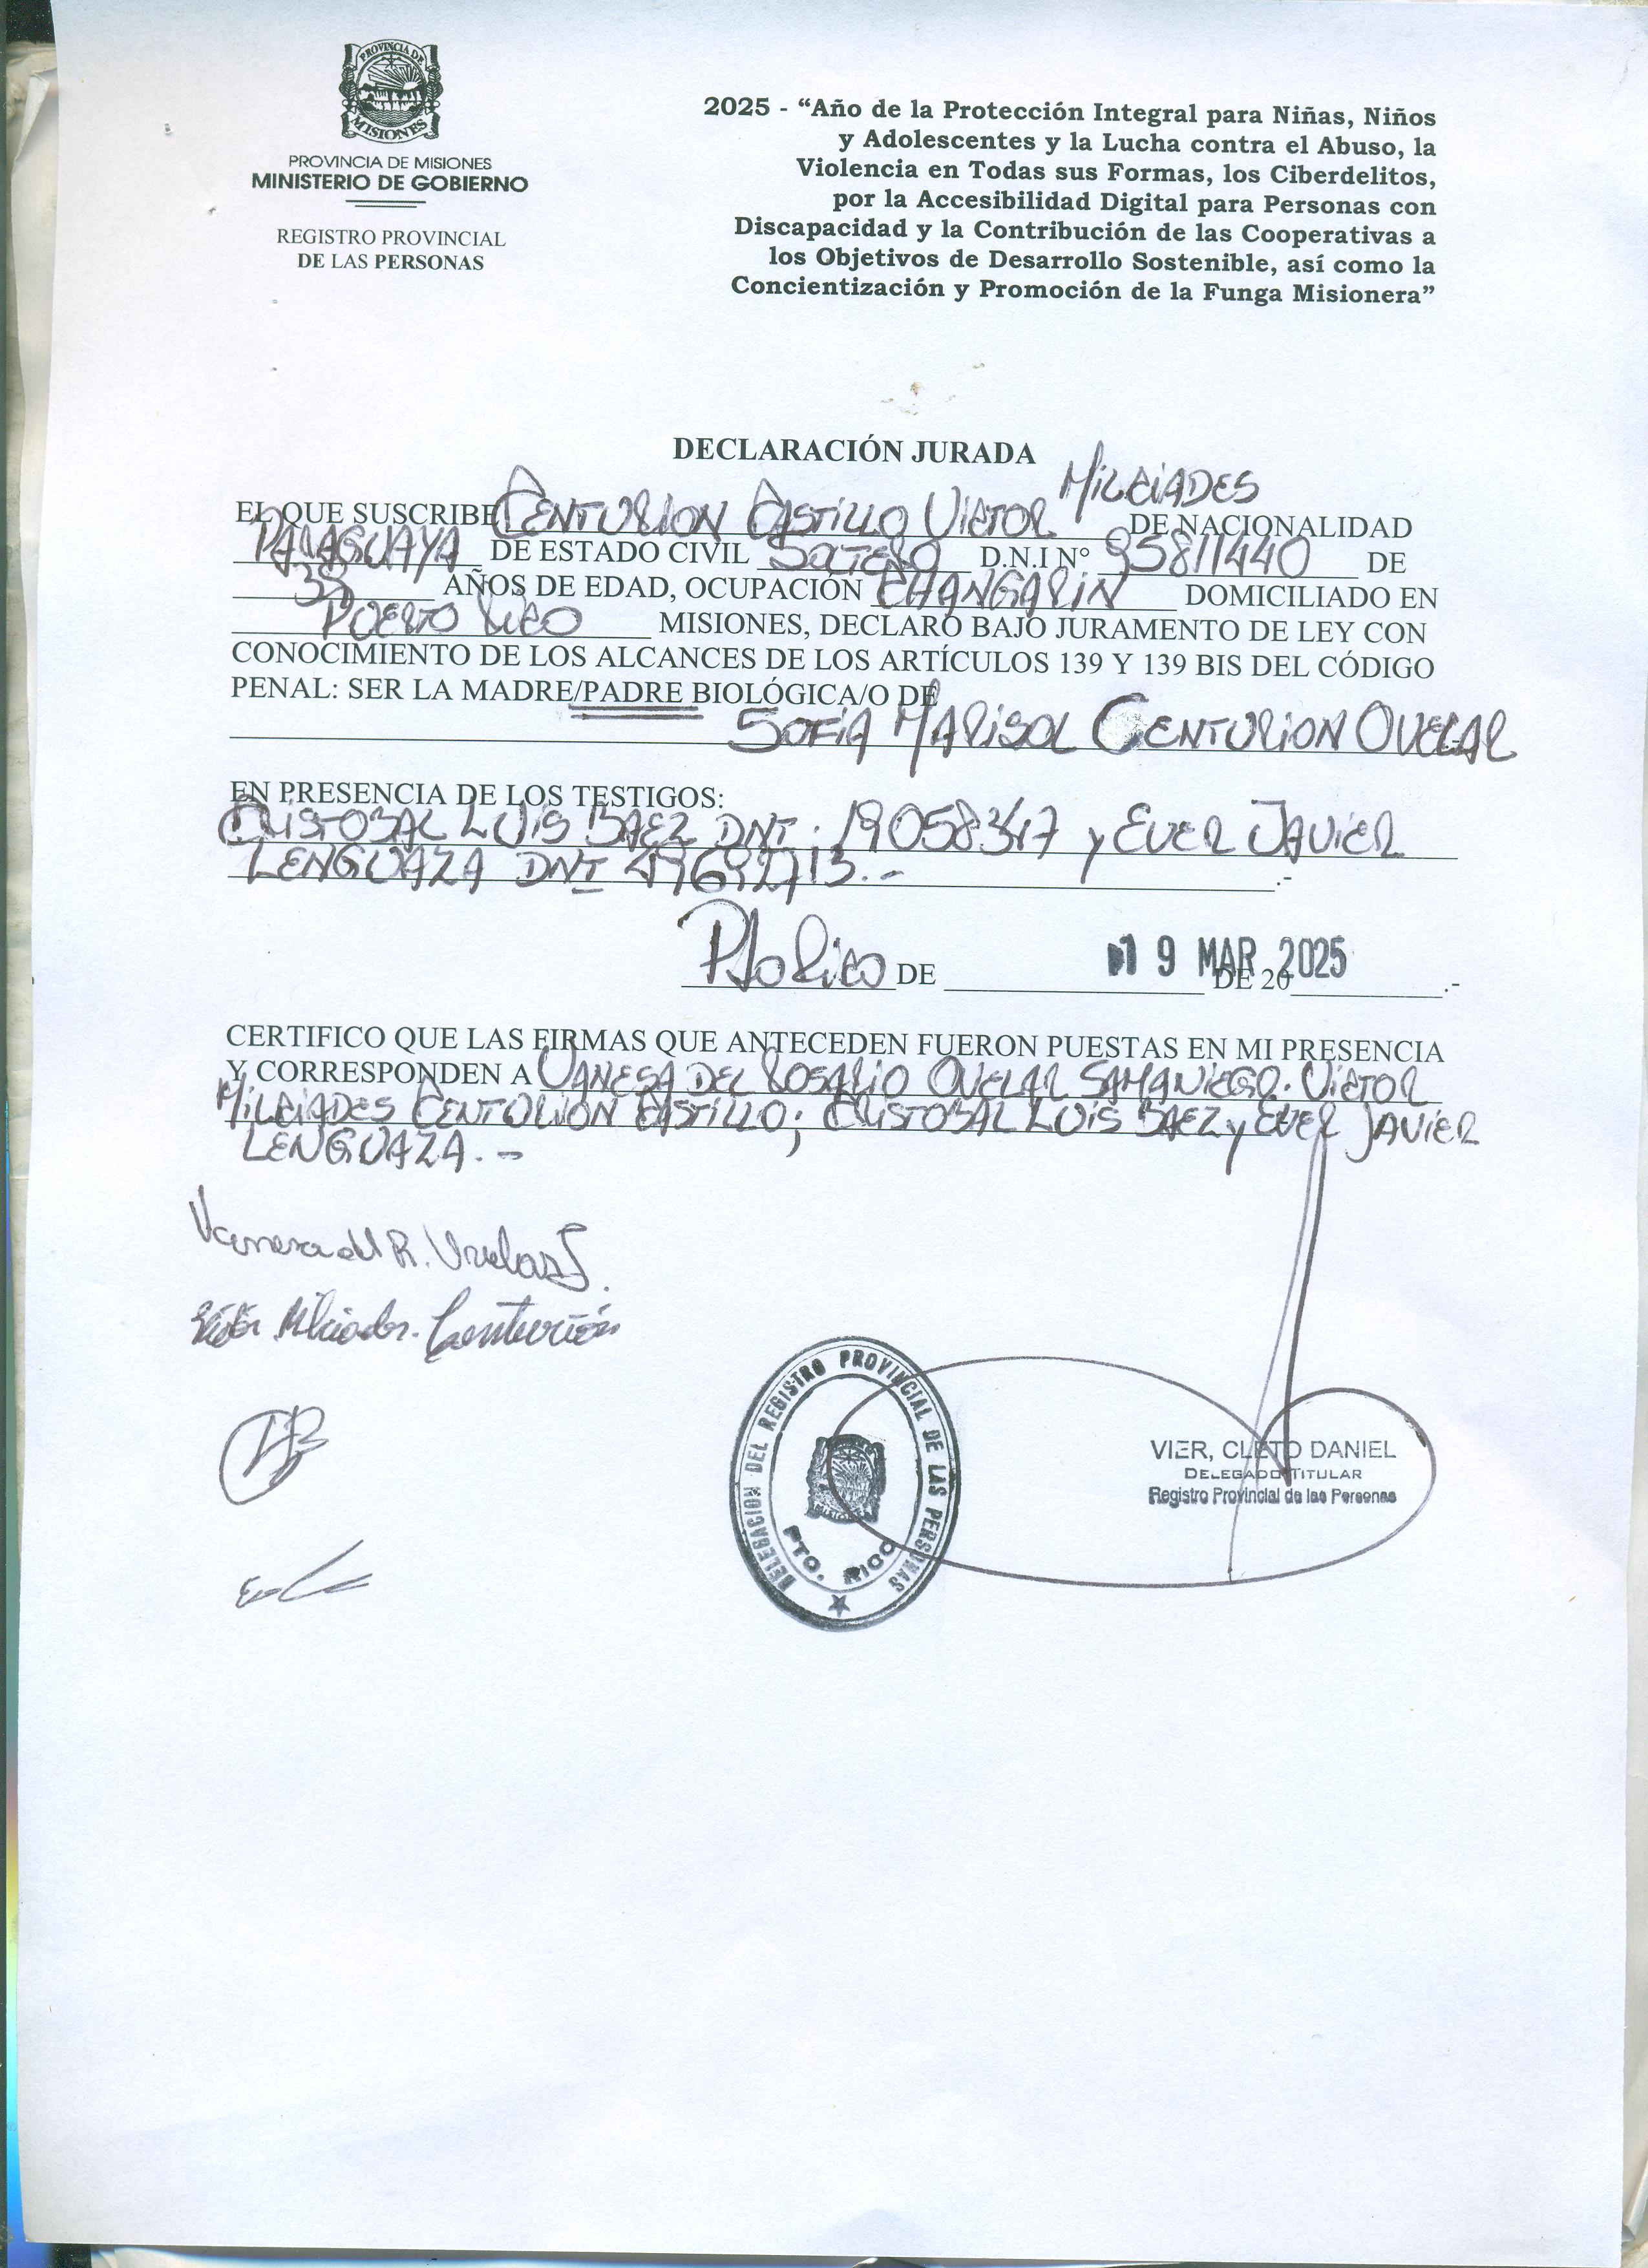 PROVINCIA DE
MISIONES
PROVINCIA DE MISIONES
MINISTERIO DE GOBIERNO
REGISTRO PROVINCIAL
DE LAS PERSONAS
2025 - “Año de la Protección Integral para Niñas, Niños
y Adolescentes y la Lucha contra el Abuso, la
Violencia en Todas sus Formas, los Ciberdelitos,
por la Accesibilidad Digital para Personas con
Discapacidad y la Contribución de las Cooperativas a
los Objetivos de Desarrollo Sostenible, así como la
Concientización y Promoción de la Funga Misionera”
DECLARACIÓN JURADA
EL QUE SUSCRIBE CENTURION CASTILLO VICTOR MILCIADES DE NACIONALIDAD
PARAGUAYA DE ESTADO CIVIL SOLTERO D.N.I N° 95811440 DE
AÑOS DE EDAD, OCUPACIÓN CHANGARIN DOMICILIADO EN
PUERTO RICO MISIONES, DECLARO BAJO JURAMENTO DE LEY CON
CONOCIMIENTO DE LOS ALCANCES DE LOS ARTÍCULOS 139 Y 139 BIS DEL CÓDIGO
PENAL: SER LA MADRE/PADRE BIOLÓGICA/O DE
SOFIA MARISOL CENTURION OVELAR
EN PRESENCIA DE LOS TESTIGOS:
CRISTOBAL LUIS BAEZ DNI: 19058347 y EVER JAVIER
LENGUAZA DNI .-
.-
Pto Rico DE 19 MAR 2025 DE 20 .-
CERTIFICO QUE LAS FIRMAS QUE ANTECEDEN FUERON PUESTAS EN MI PRESENCIA
Y CORRESPONDEN A VANESA DEL ROSARIO OVELAR SAMANIEGO. VICTOR
MILCIADES CENTURION CASTILLO; CRISTOBAL LUIS BAEZ y EVER JAVIER
LENGUAZA.-
Vanesa del R. Ovelar S.
Victor Milciades Centurión
DELEGACION DEL REGISTRO PROVINCIAL DE LAS PERSONAS
PTO. RICO
VIER, CLETO DANIEL
DELEGADO TITULAR
Registro Provincial de las Personas